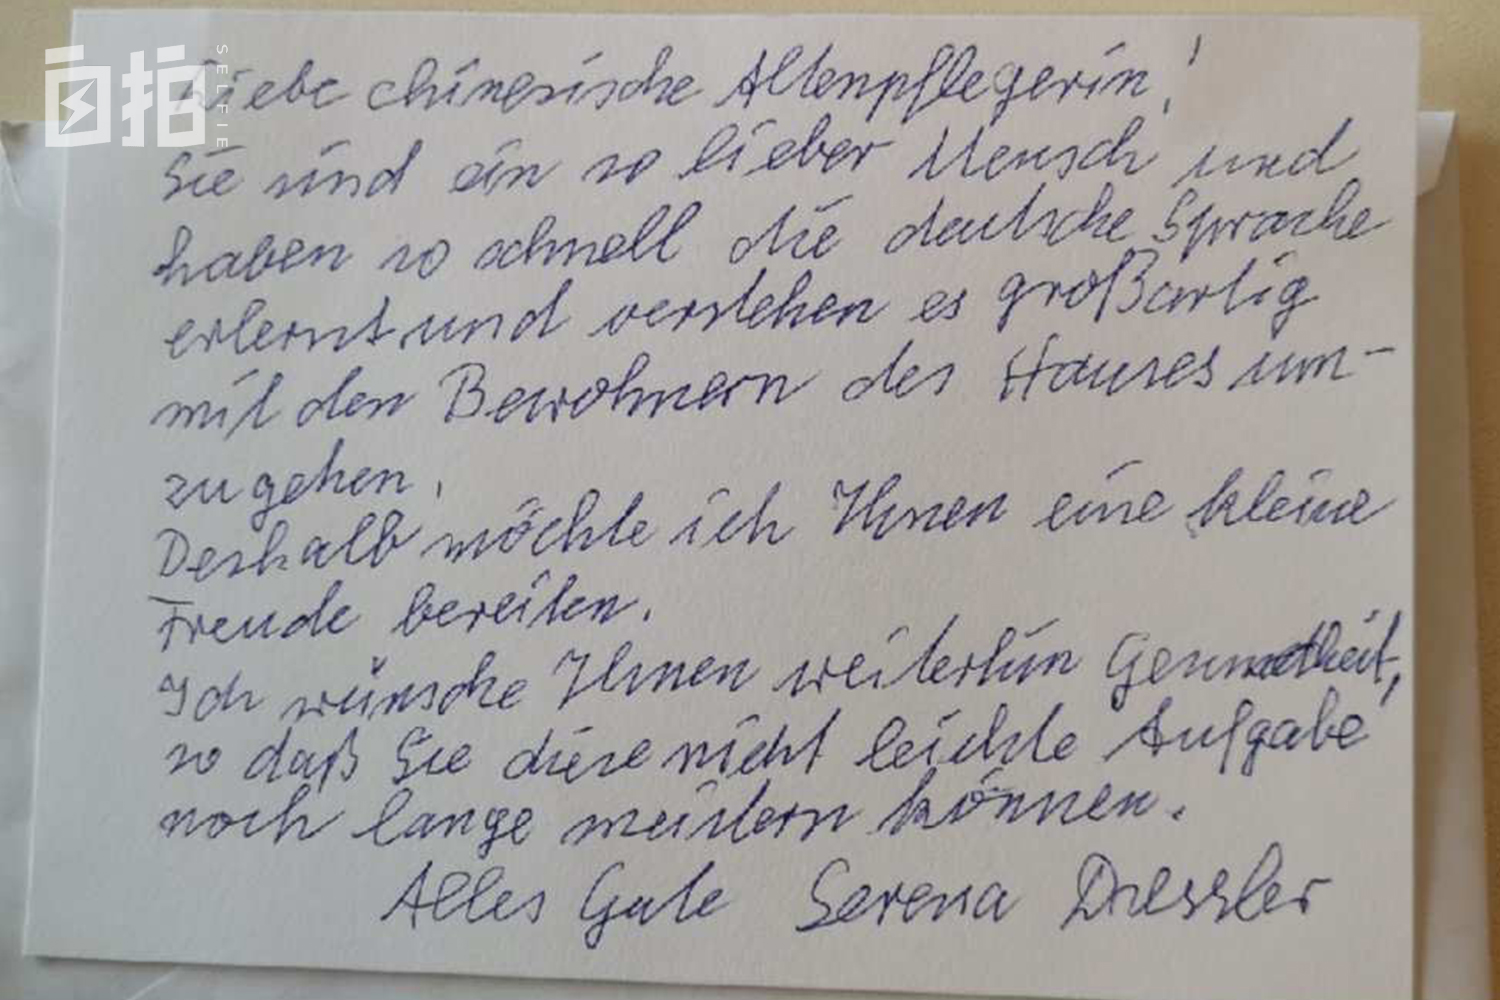 自拍
SELFIE
Liebe chinesische Altenpflegerin!
Sie sind ein so lieber Mensch und
haben so schnell die deutsche Sprache
erlernt und verstehen es großartig
mit den Bewohnern des Hauses um-
zugehen.
Deshalb möchte ich Ihnen eine kleine
Freude bereiten.
Ich wünsche Ihnen weiterhin Gesundheit,
so daß Sie diese nicht leichte Aufgabe
noch lange meistern können.
Alles Gute Serena Dressler